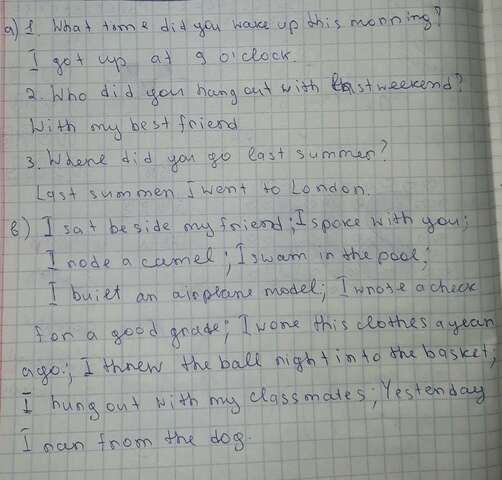 a) 1. What tome did you wake up this morning?
I got up at 9 o'clock.
2. Who did you hang out with last weekend?
With my best friend
3. Where did you go last summer?
Last summer I went to London.
b) I sat beside my friend; I spoke with you;
I rode a camel; I swam in the pool;
I built an airplane model; I wrote a check
for a good grade; I wore this clothes a year
ago; I threw the ball right into the basket;
I hung out with my classmates; Yesterday
I ran from the dog.